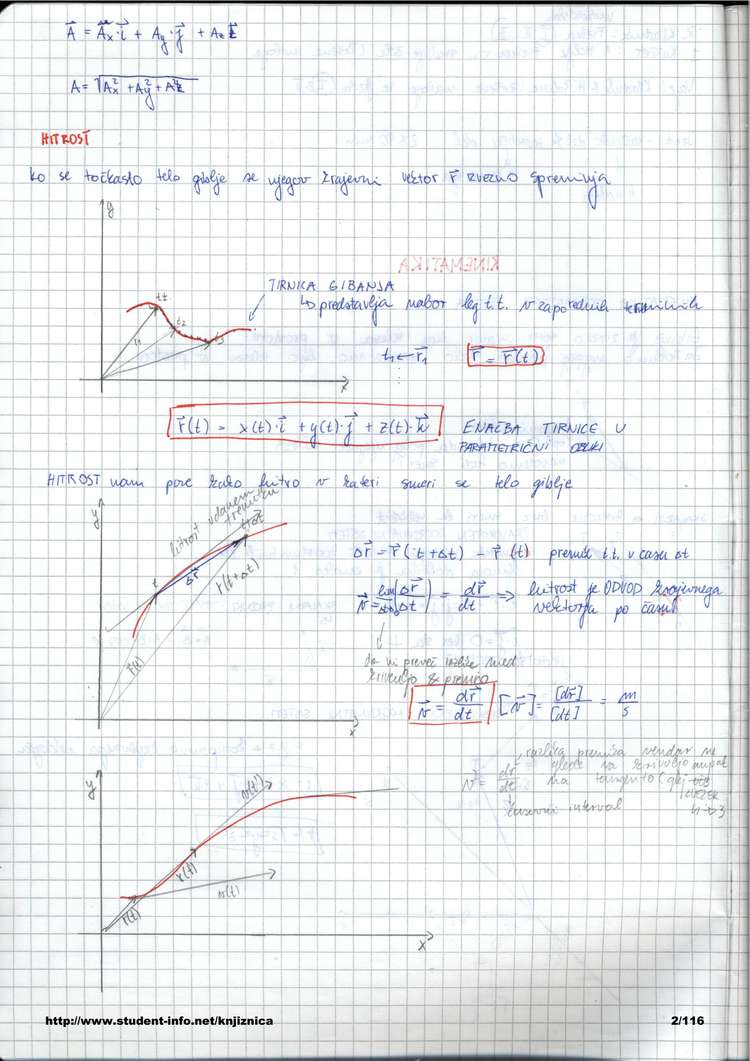 A⃗ = A⃗x·i⃗ + Ay·j⃗ + Az k⃗
A = √(Ax² + Ay² + Az²)
HITROST
ko se točkasto telo giblje se njegov krajevni vektor r⃗ zvezno spreminja
y
KINEMATIKA
TIRNICA GIBANJA
t1
↳ predstavlja nabor leg t.t. v zaporednih
t2
t3
r1
t1 ← r⃗1
r⃗ = r⃗(t)
x
r⃗(t) = x(t)·i⃗ + y(t)·j⃗ + z(t)·k⃗
ENAČBA TIRNICE V
PARAMETRIČNI OBLIKI
HITROST nam pove kako hitro v kateri smeri se telo giblje
y
hitrost v danem
trenutku
t+Δt
t
Δr⃗
r(t+Δt)
r(t)
x
Δr⃗ = r⃗(t+Δt) − r⃗(t) premik t.t. v času Δt
v⃗ = lim Δt→0 (Δr⃗/Δt) = dr⃗/dt ⇒ hitrost je ODVOD krajevnega
vektorja po času
da ni preveč razlike med
krivuljo & premico
v⃗ = dr⃗/dt
[v⃗] = [dr⃗]/[dt] = m/s
razlika premika vendar ne
v⃗ = dr⃗/dt
glede na krivuljo ampak
na tangento
časovni interval
y
v(t')
r(t)
v(t)
r(t)
x
http://www.student-info.net/knjiznica
2/116